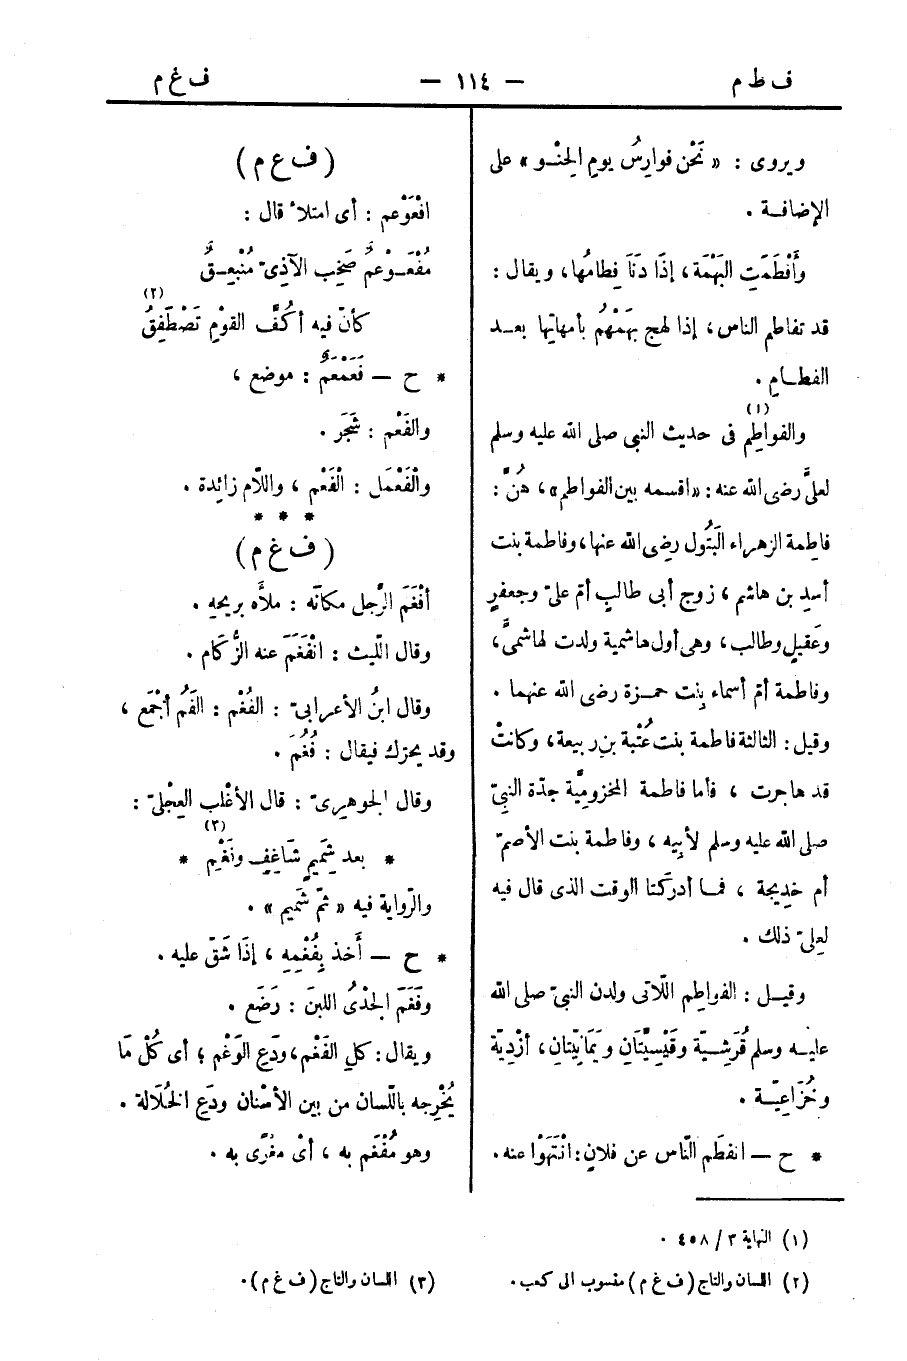 ف ط م — ١١٤ — ف غ م
ويروى : « نَحْن فوارسُ يومِ الحِنْـو » على
الإضافـة .
وأَفْطَمَتِ البَهْمَة ، إذَا دَنَا فِطامُها ، ويقال :
قد تفاطم الناس ، إذا لهج بَهْمُهُم بأمهاتها بعـد
الفطـامِ .
والفواطِم (١) فى حديث النبى صلى الله عليه وسلم
لعلىٍّ رضى الله عنه : «اقسمه بين الفواطم» ، هُنَّ :
فاطِمة الزهراء البَتُول رضِى الله عنها ، وفاطمة بنت
أسدِ بن هاشم ، زوج أبى طالبٍ أمّ علىّ وجعفرٍ
وعَقيلٍ وطالب ، وهى أول هاشمية ولدت لهاشمىٍّ ،
وفاطمة أمّ أسماء بِنت حمـزة رضى الله عنهما .
وقيل : الثالثة فاطمة بنت عُتْبة بن ربيعة ، وكانتْ
قد هاجرت ، فأما فاطمة المخزوميَّة جدّة النبىّ
صلى الله عليه وسلم لأبِيه ، وفاطمة بنت الأصمّ
أم خَدِيجة ، فمـا أدركتا الوقت الذى قال فيه
لعلىّ ذلك .
وقيـل : الفواطِم اللّاتى ولدن النبىّ صلى الله
عليـه وسلم قُرَشِـيّة وقَيْسِيَّتَانِ ويَمَانِيّتان ، أزْدِيّة
وخُزَاعِيّـة .
* ح — انفطَم النّاس عن فلانٍ : انْتَهَوْا عنه .
(ف ع م)
افْعَوْعم : أى امتلأ قال :
مُفْعَـوْعمٌ صَخِب الآذِىّ مُنْبعِـقٌ
كأنّ فيه أكُفَّ القوْمِ تَصْطَفِقُ (٢)
* ح — فَعَمْعَمٌ : موضع ،
والفَعْم : شَجَر .
والْفَعْمَل : الْفَعْم ، واللّام زائدة .
* * *
(ف غ م)
أفْغَمَ الرّجل مكانَه : ملأَه بريحِه .
وقال اللّيث : انْفَغَمَ عنه الزُّكَام .
وقال ابنُ الأعرابىّ : الفُغْم : الفَمُ أجْمَع ،
وقد يحرّك فيقال : فُغُمَ .
وقال الجوهرىّ : قال الأغْلب العِجْلىّ :
* بعد شَمِيمٍ شَاغِفٍ ونَغْيم (٣) *
والرّواية فيه « ثمّ شَمِيم » .
* ح — أَخذ بِفُغْمِهِ ، إذَا شَقّ عليه .
وفَغَمَ الجَدْىُ اللبن : رَضَع .
ويقال : كلِ الفَغْم ، ودَعِ الوَغْم ؛ أى كُلْ مَا
يُخْرِجه باللّسان من بين الأسْنان ودَعِ الخُلَالة .
وهو مُفْغَم به ، أىْ مغْرًى به .
(١) النهاية ٣ / ٤٥٨ .
(٢) اللسان والتاج (ف غ م) منسوب الى كعب .
(٣) اللسان والتاج (ف غ م) .